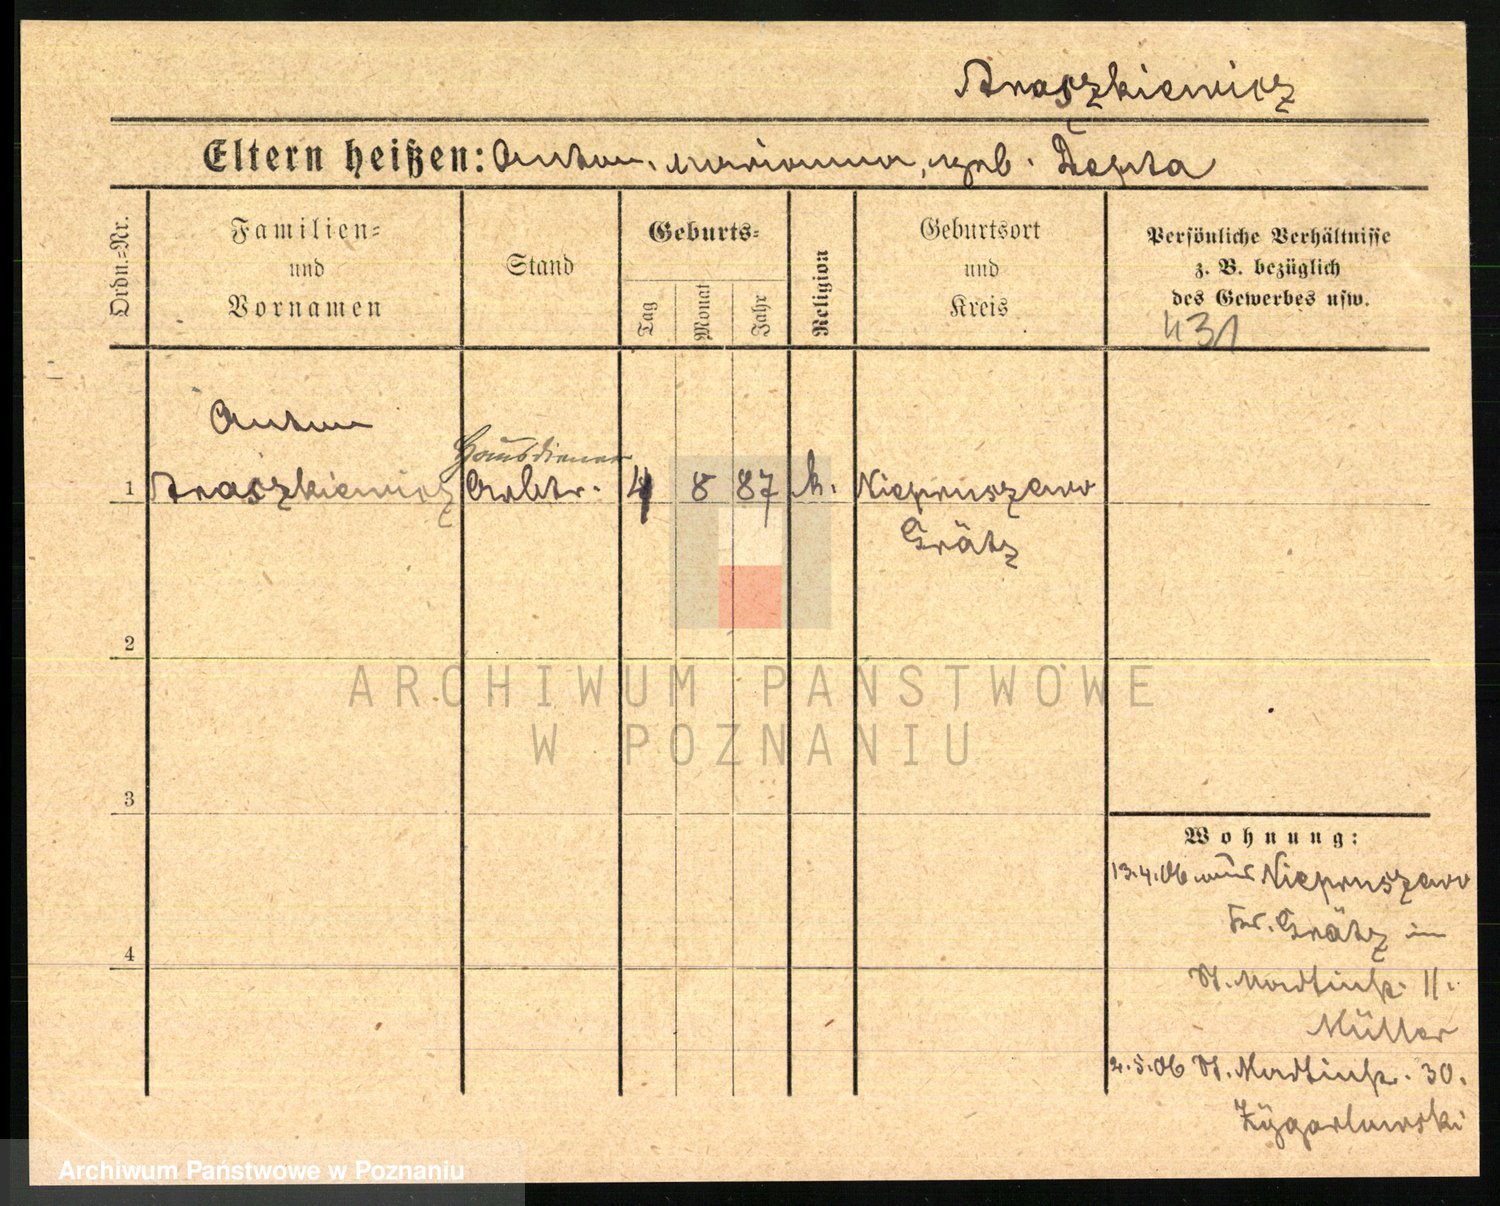 Araszkiewicz
Eltern heißen: Anton, Marianna, geb. Depta
Ordn.-Nr.
Familien-
und
Vornamen
Stand
Geburts-
Tag
Monat
Jahr
Religion
Geburtsort
und
Kreis
Persönliche Verhältnisse
z. B. bezüglich
des Gewerbes usw.
431
Anton
Hausdiener
1 Araszkiewicz Arbtr. 4 8 87 k. Niepruszewo
Grätz
2
3
4
Wohnung:
13.4.06 aus Niepruszewo
Kr. Grätz in
St. Martinstr. 11.
Müller
2.5.06 St. Martinstr. 30.
ARCHIWUM PAŃSTWOWE
W POZNANIU
Archiwum Państwowe w Poznaniu